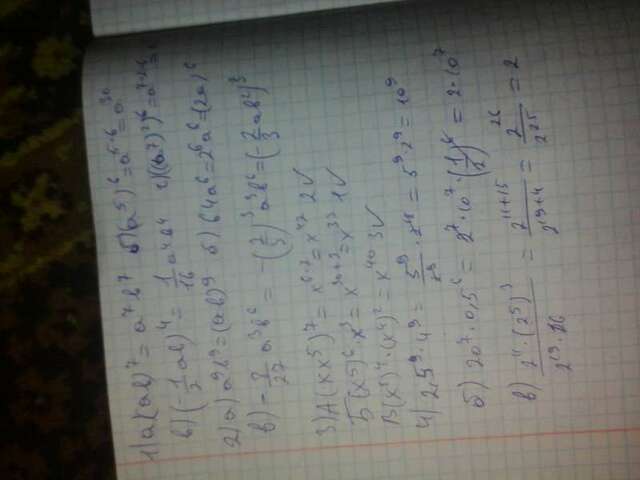 1) а) (ab)⁷ = a⁷b⁷ б) (a⁵)⁶ = a⁵·⁶ = a³⁰
в) (-1/2 ab)⁴ = 1/16 a⁴b⁴ г) ((a⁷)²)⁶ =
2) а) a⁹b⁹ = (ab)⁹ б) 64a⁶ = 2⁶a⁶ = (2a)⁶
в) -8/27 a³b⁶ = -(2/3)³ a³b⁶ = (-2/3 ab²)³
3) А (x·x⁵)⁷ = x⁶·⁷ = x⁴² 2√
Б (x⁵)⁶·x³ = x³⁰⁺³ = x³³ 1√
= x⁴⁰ 3√
4) 2,5⁹·4⁹ = = 5⁹·2⁹ = 10⁹
б) 20⁷·0,5⁶ = 2⁷·10⁷·(1/2)⁶ = 2·10⁷
в) 2⁴·(2⁵)³ / 2¹⁹·16 = 2¹¹⁺¹⁵ / 2¹⁹⁺⁴ = 2²⁶ / 2²⁵ = 2